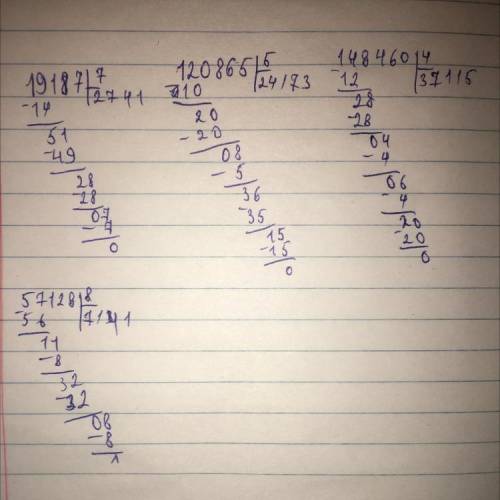 19187 7
-14 2741
51
-49
28
-28
07
-7
0
120865 5
-10 24173
20
-20
08
-5
36
-35
15
-15
0
148460 4
-12 37115
28
-28
04
-4
06
-4
20
-20
0
57128 8
-56 7141
11
-8
32
-32
08
-8
1